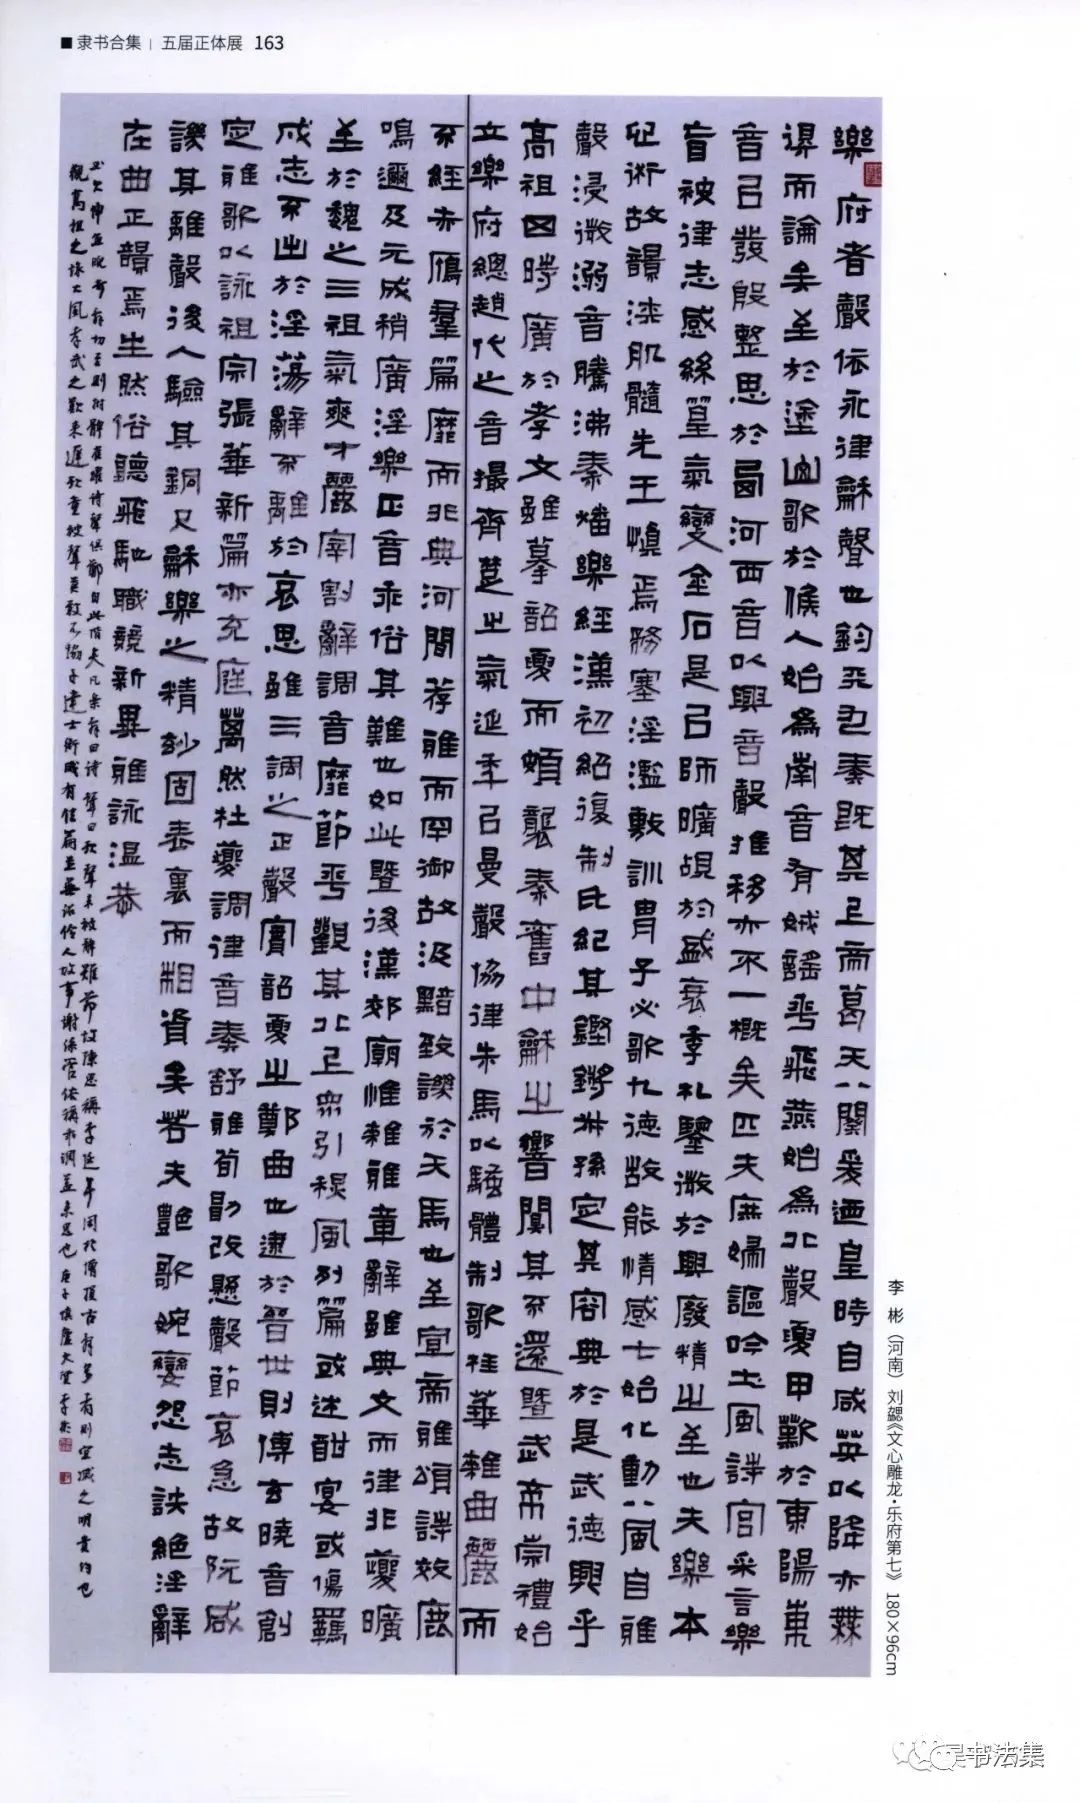 隶书合集 | 五届正体展 163
樂府者聲依永律龢聲也鈞天九奏既其上帝葛天八闋爰迺皇時自咸英以降亦無
得而論矣至於塗山歌於候人始為南音有娀謠乎飛燕始為北聲夏甲歎於東陽東
音以發殷整思於西河西音以興音聲推移亦不一概矣匹夫庶婦謳吟土風詩官采言樂
盲被律志感絲篁氣變金石是以師曠覘於盛衰季札鑒微於興廢精之至也夫樂本
心術故韻浹肌髓先王慎焉務塞淫濫敷訓胄子必歌九德故能情感七始化動八風自雅
聲浸微溺音騰沸秦燔樂經漢初紹復制氏紀其鏗鏘叔孫定其容典於是武德興乎
高祖四時廣於孝文雖摹韶夏而頗襲秦舊中龢之響闃其不還暨武帝崇禮始
立樂府總趙代之音撮齊楚之氣延年以曼聲協律朱馬以騷體制歌桂華雜曲麗而
不經赤鴈羣篇靡而非典河間荐雅而罕御故汲黯致譏於天馬也至宣帝雅頌詩效鹿
鳴邇及元成稍廣淫樂正音乖俗其難也如此暨後漢郊廟惟雜雅章辭雖典文而律非夔曠
至於魏之三祖氣爽才麗宰割辭調音靡節平觀其北上眾引秋風列篇或述酣宴或傷羈
戍志不出於淫蕩辭不離於哀思雖三調之正聲實韶夏之鄭曲也逮於晉世則傅玄曉音創
定雅歌以詠祖宗張華新篇亦充庭萬然杜夔調律音奏舒雅荀勖改懸聲節哀急故阮咸
譏其離聲後人驗其銅尺龢樂之精妙固表裏而相資矣若夫艷歌婉孌怨志詄絕淫辭
在曲正韻焉生然俗聽飛馳職競新異雅詠溫恭
必欠伸魚睨奇辭切至則拊髀雀躍詩聲俱鄭自此階矣凡樂辭曰詩聲曰歌聲來被辭難節故陳思稱李延年閑於增損古辭多者則宜減之明貴約也
觀高祖之詠大風孝武之歎來遲歌童被聲莫敢不協子建士衡咸有佳篇並無詔伶人故事謝絲管俗稱乖調蓋未思也庚子
李彬
李 彬（河南） 刘勰《文心雕龙·乐府第七》 180×96cm
书法集